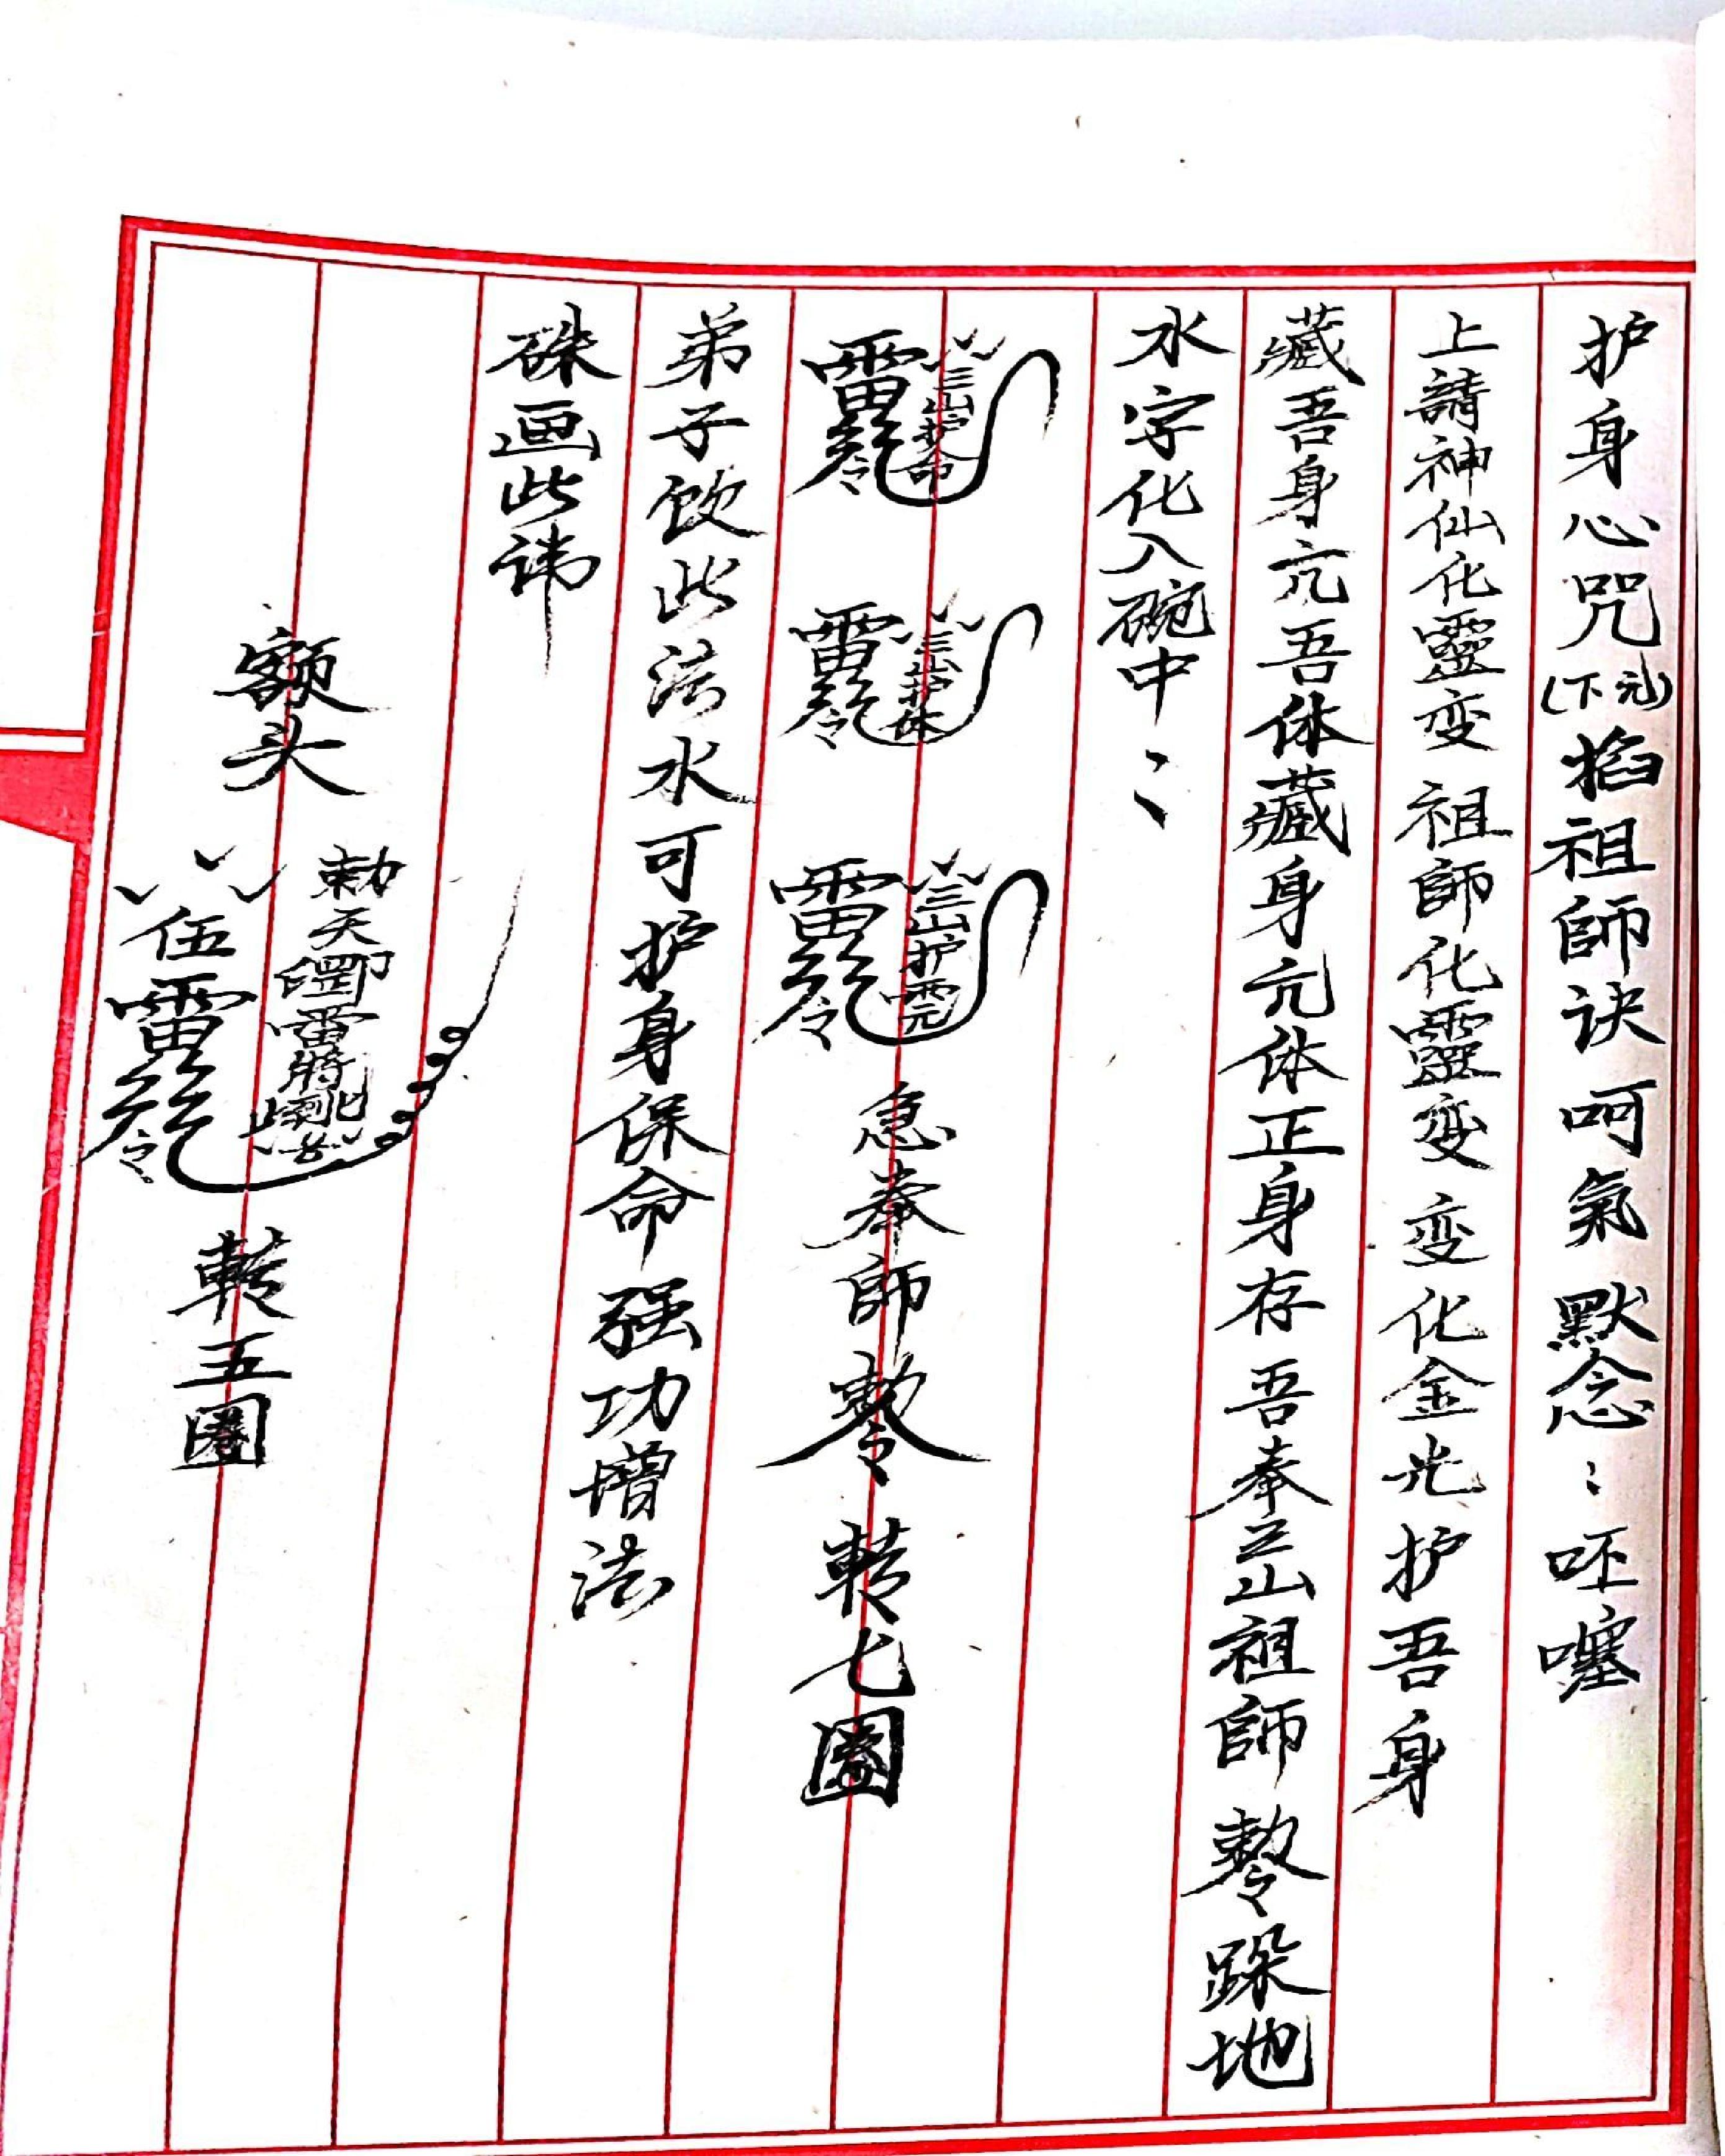 护身心咒(下元)掐祖師诀呵氣默念：呸噻
上請神仙化靈变祖師化靈变变化金光护吾身
藏吾身亢吾体藏身亢体正身存吾奉三山祖師敕令跺地
水字化入碗中：
三山护命
三山护体
三山护
急奉師敕令転七圈
弟子饮此法水可护身保命强功增法
硃画此讳
额头
勅天雷將
伍雷令
転五圈